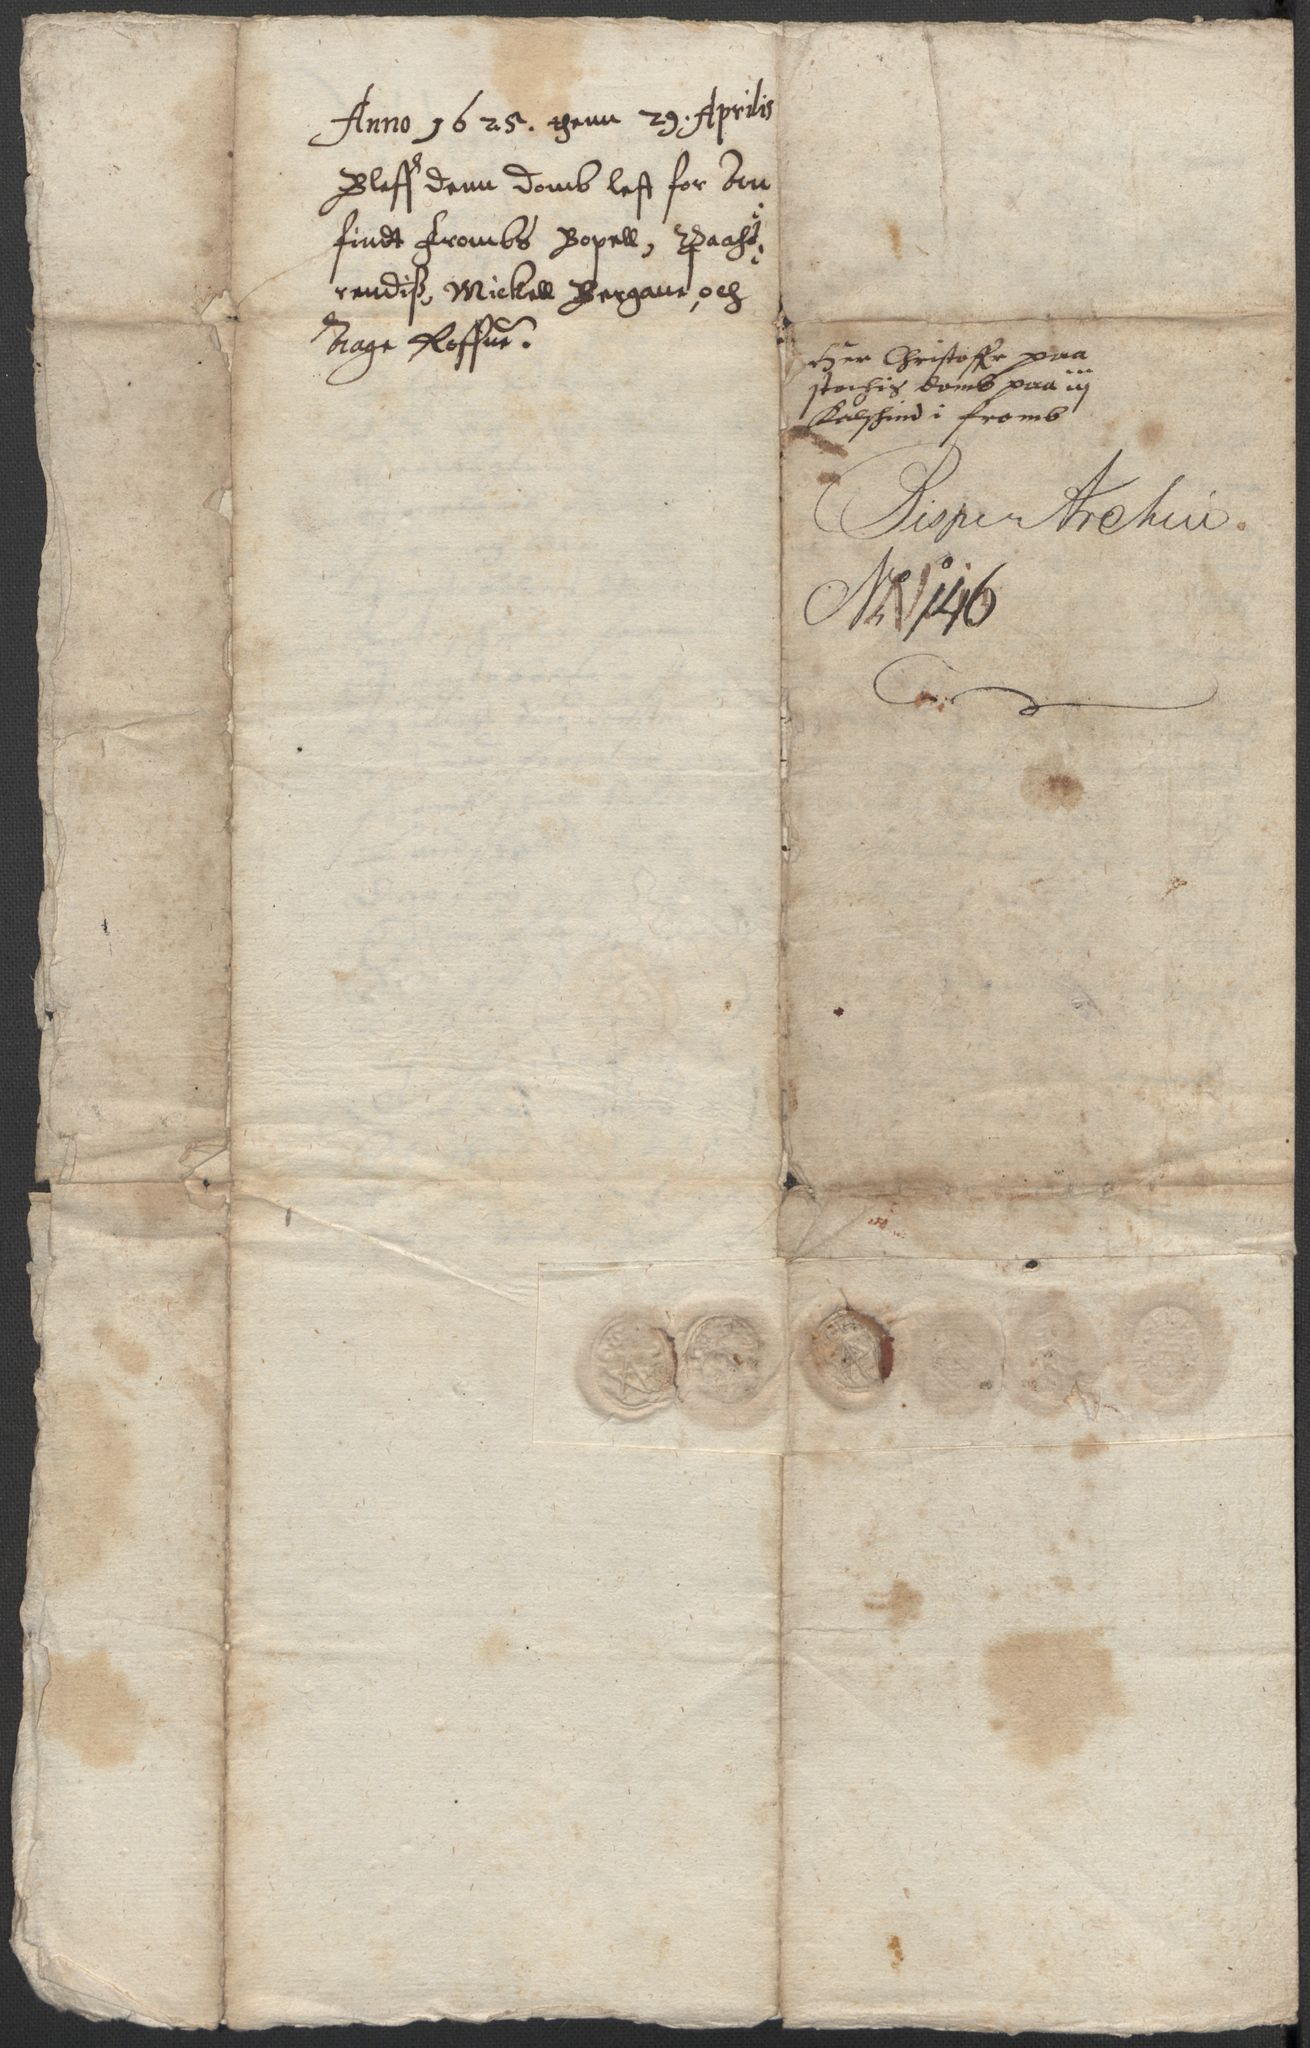 Anno 1625. thenn 29. Aprilis
Bleff denn domb lest for
findt Frombs Bopell,
rendiß, Mickell Bergaue, och
Aage Roffue.
Her Christoffr paa
domb paa iij
i fromb
Bispen Archiv.
No 146